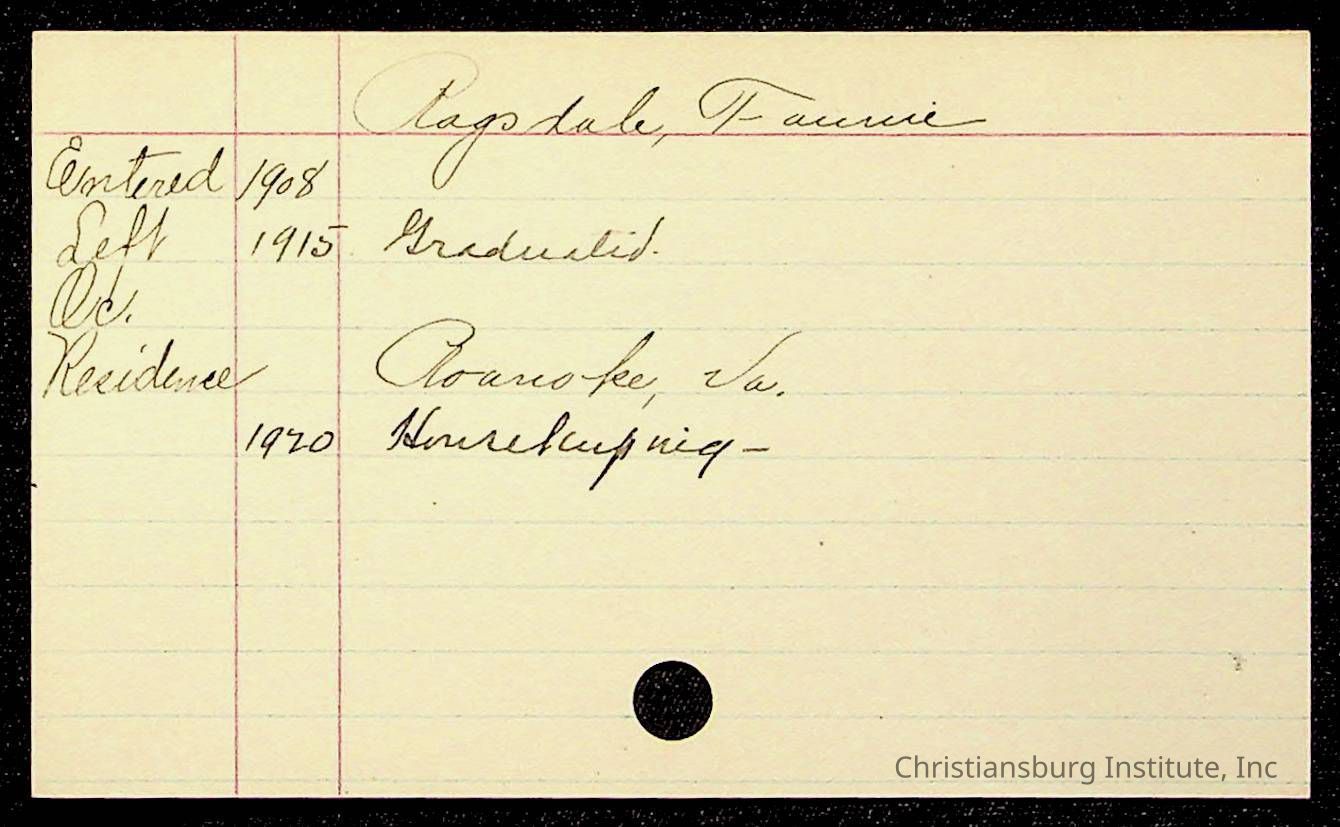 Ragsdale, Fannie
Entered 1908
Left 1915 Graduated.
Oc.
Residence Roanoke, Va.
1920 Housekeeping -
Christiansburg Institute, Inc